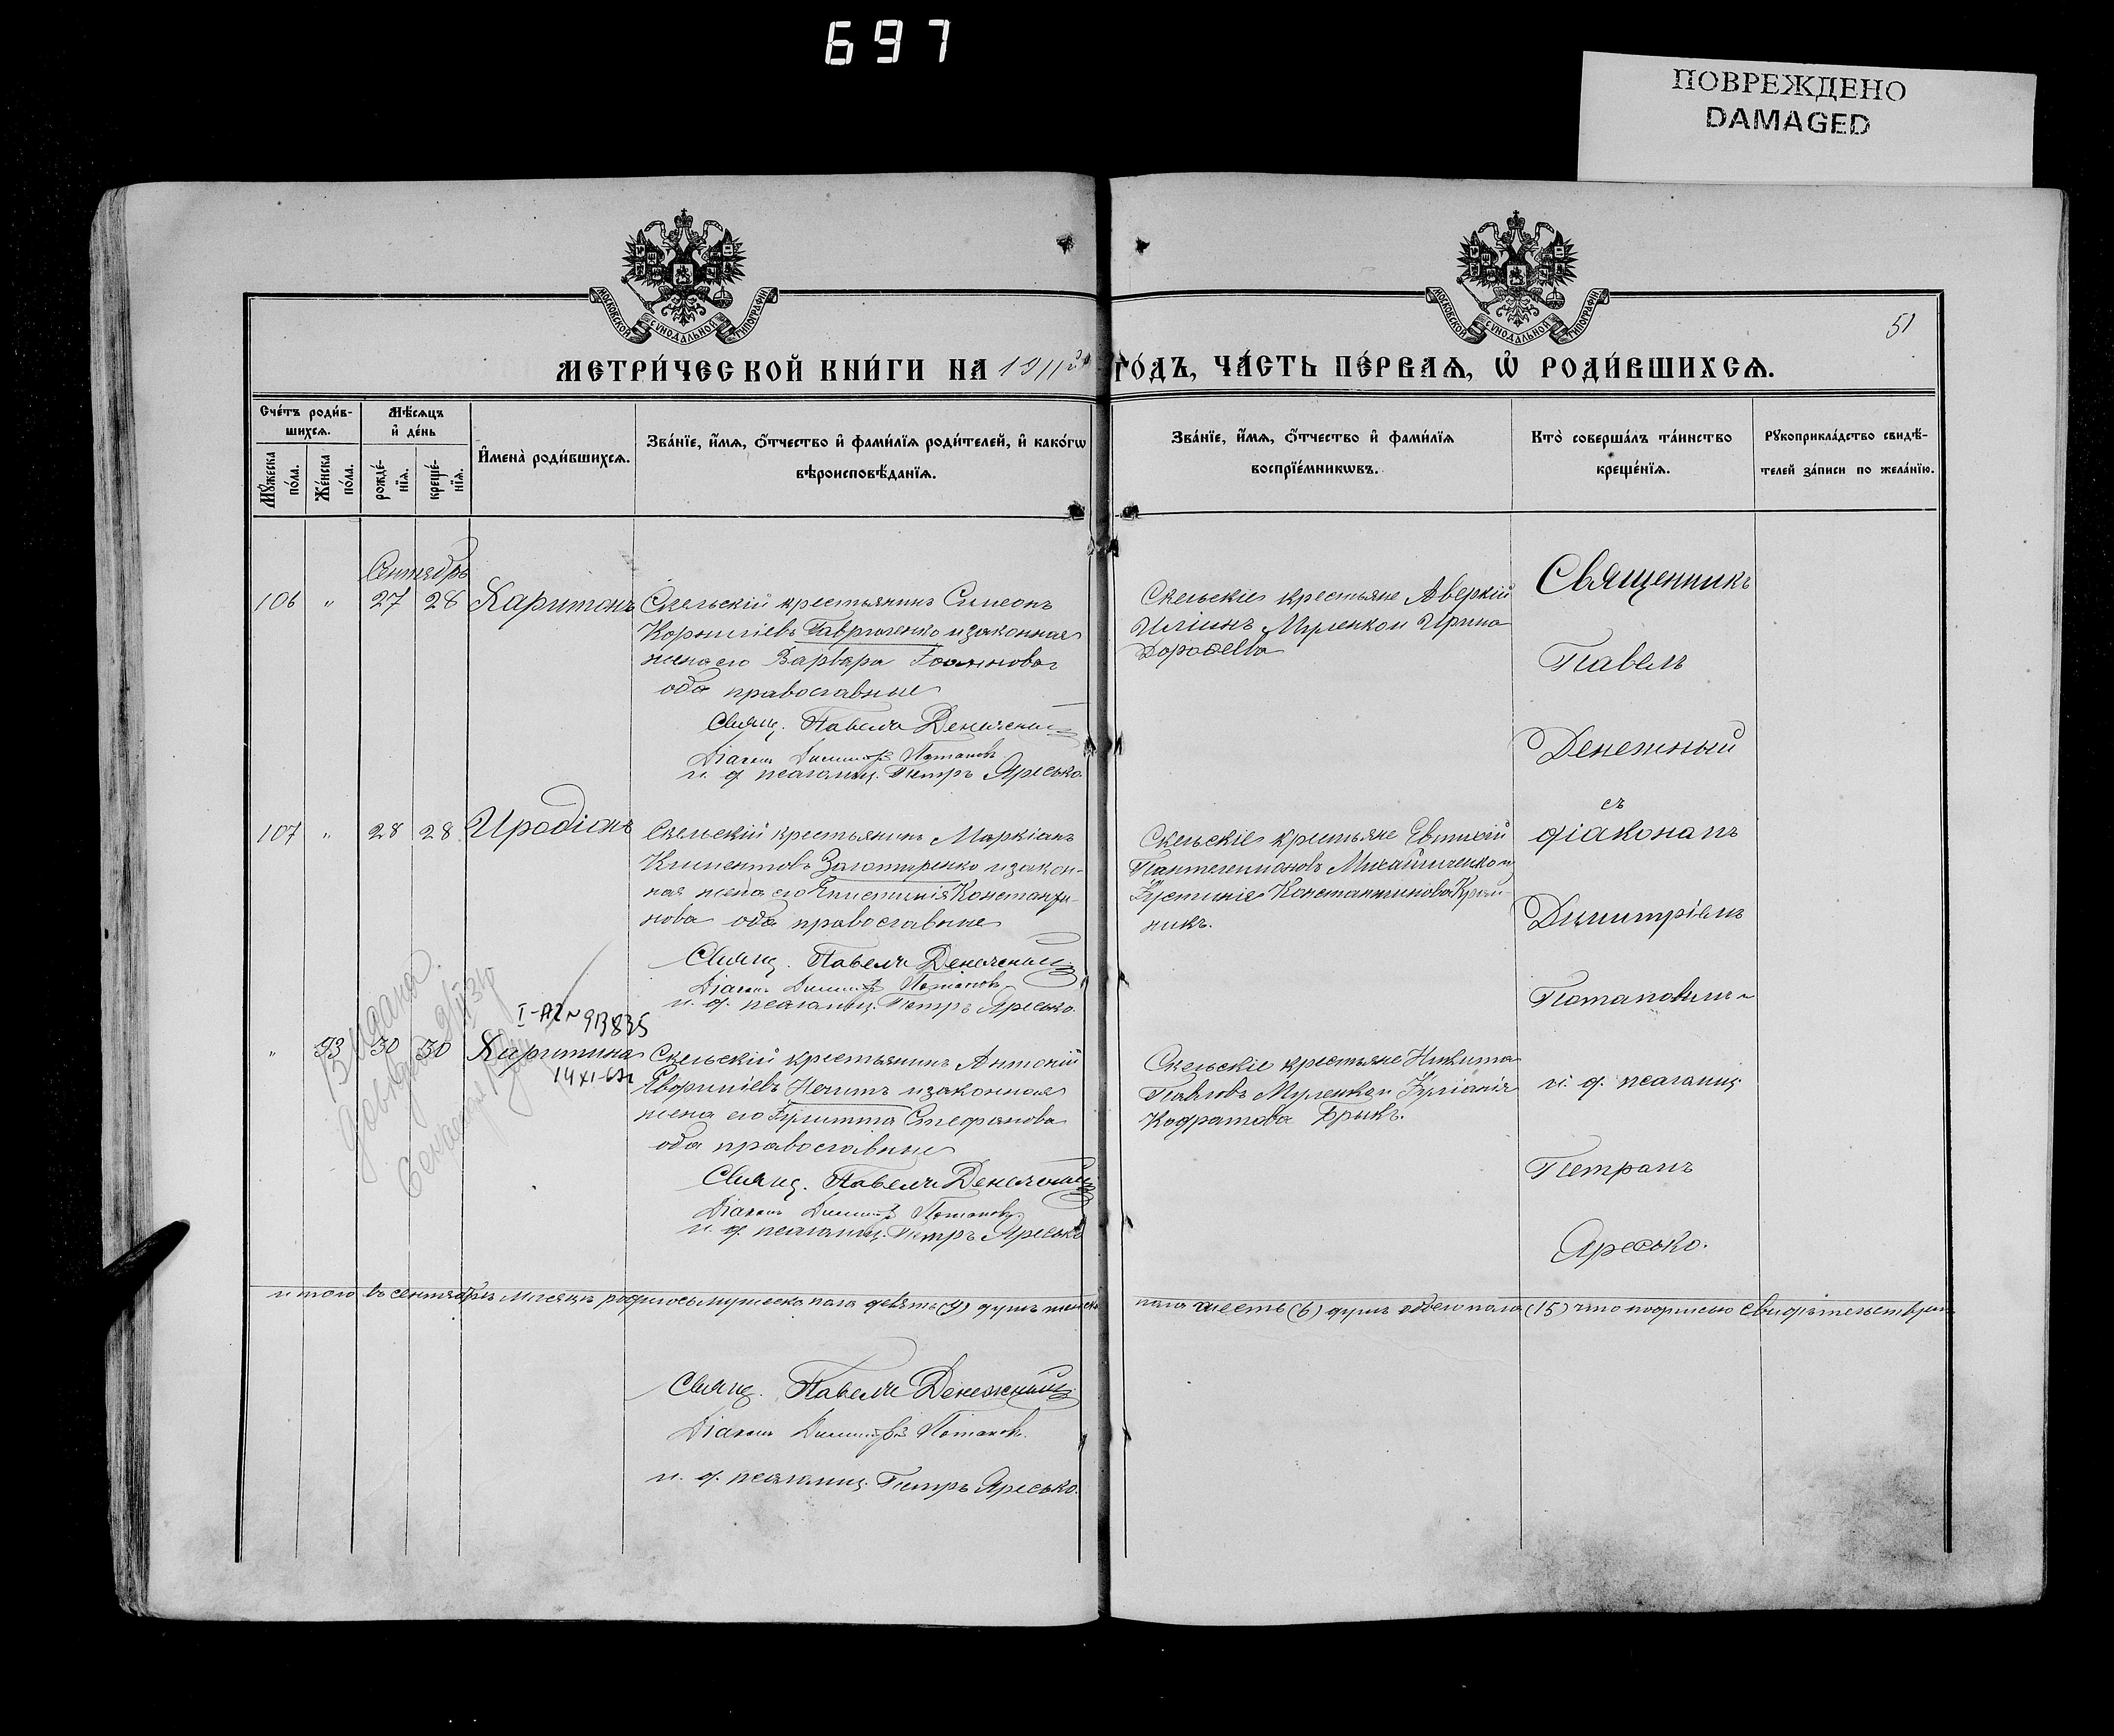 697
ПОВРЕЖДЕНО
DAMAGED
МОСКОВСКОЙ СѴНОДАЛЬНОЙ ТИПОГРАФІИ
МОСКОВСКОЙ СѴНОДАЛЬНОЙ ТИПОГРАФІИ
51
МЕТРИ́ЧЕСКОЙ КНИ́ГИ НА 1911й ГО́ДЪ, ЧА́СТЬ ПЕ́РВАѦ, Ѡ҆ РОДИ́ВШИХСѦ.
Сче́тъ роди́в-
шихсѧ.
Мꙋ́жеска по́ла.
Же́нска по́ла.
Мѣ́сѧцъ
и҆ де́нь
рожде́-
нїѧ.
креще́-
нїѧ.
И҆мена̀ роди́вшихсѧ.
Зва́нїе, и҆́мѧ, ѻ҆́тчество и҆ фами́лїѧ роди́телей, и҆ како́гѡ
вѣроисповѣ́данїѧ.
Зва́нїе, и҆́мѧ, ѻ҆́тчество и҆ фами́лїѧ
воспрїе́мникѡвъ.
Кто̀ соверша́лъ та́инство
креще́нїѧ.
Рꙋкоприкла́дство свидѣ́-
телей за́писи по жела́нїю.
Сентябрь
106 " 27 28 Харитонъ
Скельскій крестьянинъ Симеонъ
Корниліевъ Гавриленко и законная
жена его Варвара Іоаннова
оба православные
Свящ. Павелъ Денежный
Діаконъ Димитрій Потаповъ
и. д. псаломщ. Петръ Яресько.
Скельскіе крестьяне Аверкій
Иліинъ Муленко и Ирина
Дороѳеева
Священникъ
Павелъ
Денежный
съ
діакономъ
Димитріемъ
Потаповымъ и
и. д. псаломщ.
Петромъ
Яресько.
107 " 28 28 Иродіонъ
Скельскій крестьянинъ Маркіанъ
Климентовъ Золотаренко и закон-
ная жена его Епистимія Константи-
нова оба православные
Свящ. Павелъ Денежный
Діаконъ Димитрій Потаповъ
и. д. псаломщ. Петръ Яресько.
Скельскіе крестьяне Евтихій
Пантелеимоновъ Михайличенко и
Іустинія Константинова Край-
никъ.
Видана
I-А2 № 913835
14 XI-67г
" 93 30 30 Харитина
Скельскій крестьянинъ Антоній
Нечитъ и законная
жена его Іулитта Стефанова
оба православные
Свящ. Павелъ Денежный
Діаконъ Димитрій Потаповъ
и. д. псаломщ. Петръ Яресько
Скельскіе крестьяне Никита
Павловъ Муленко и Іуліанія
Кодратова Брыкъ.
Итого въ сентябрѣ мѣсяцѣ родилось мужеска пола девять (9) душъ женска пола шесть (6) душъ обоего пола (15) что подписью свидѣтельствуемъ
Свящ. Павелъ Денежный
Діаконъ Димитрій Потаповъ.
и. д. псаломщ. Петръ Яресько.